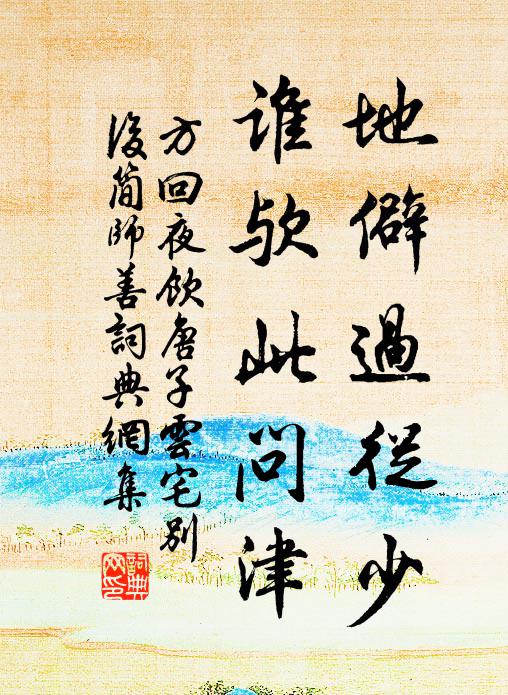 地僻過從少
誰歟此問津
方回夜飲唐子雲宅別
後簡師善詞典網集
詞典
网印